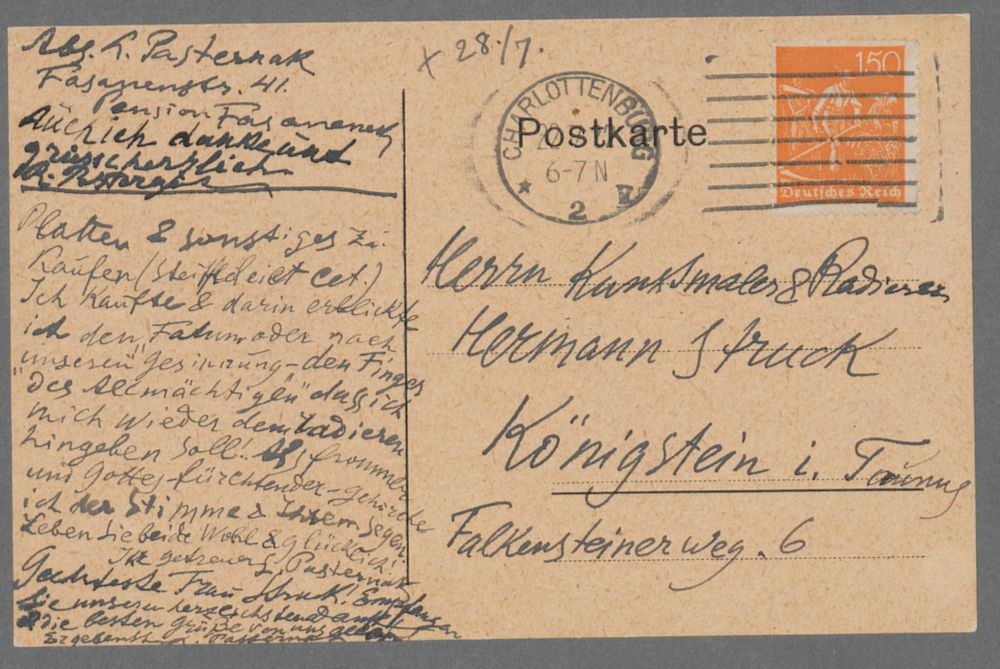 Abs. L. Pasternak
Fasanenstr. 41.
Pension Fasaneneck
Auch ich danke und
grüsse herzlich
R. Pasternak
× 28/7.
CHARLOTTENBURG
6-7 N
★ 2
Postkarte
150
Deutsches Reich
Platten & sonstiges zu
Kaufen (
Ich kaufte & darin erblickte
ich den „Fatum" oder nach
unserer Gesinnung - den „Finger
des Allmächtigen" dass ich
mich wieder dem Radieren
hingeben soll! Als frommer
und Gottes-fürchtender - gehorche
ich der Stimme & Ihrem Segen
Leben Sie beide Wohl & glücklich!
Ihr getreuer L. Pasternak
Geehrteste Frau Struck! Empfangen
Sie unseren herzlichsten dank
& die besten grüße von uns
Ergebenst L. Pasternak
Herrn Kunstmaler & Radierer
Hermann Struck
Königstein i. Taunus
Falkensteinerweg. 6